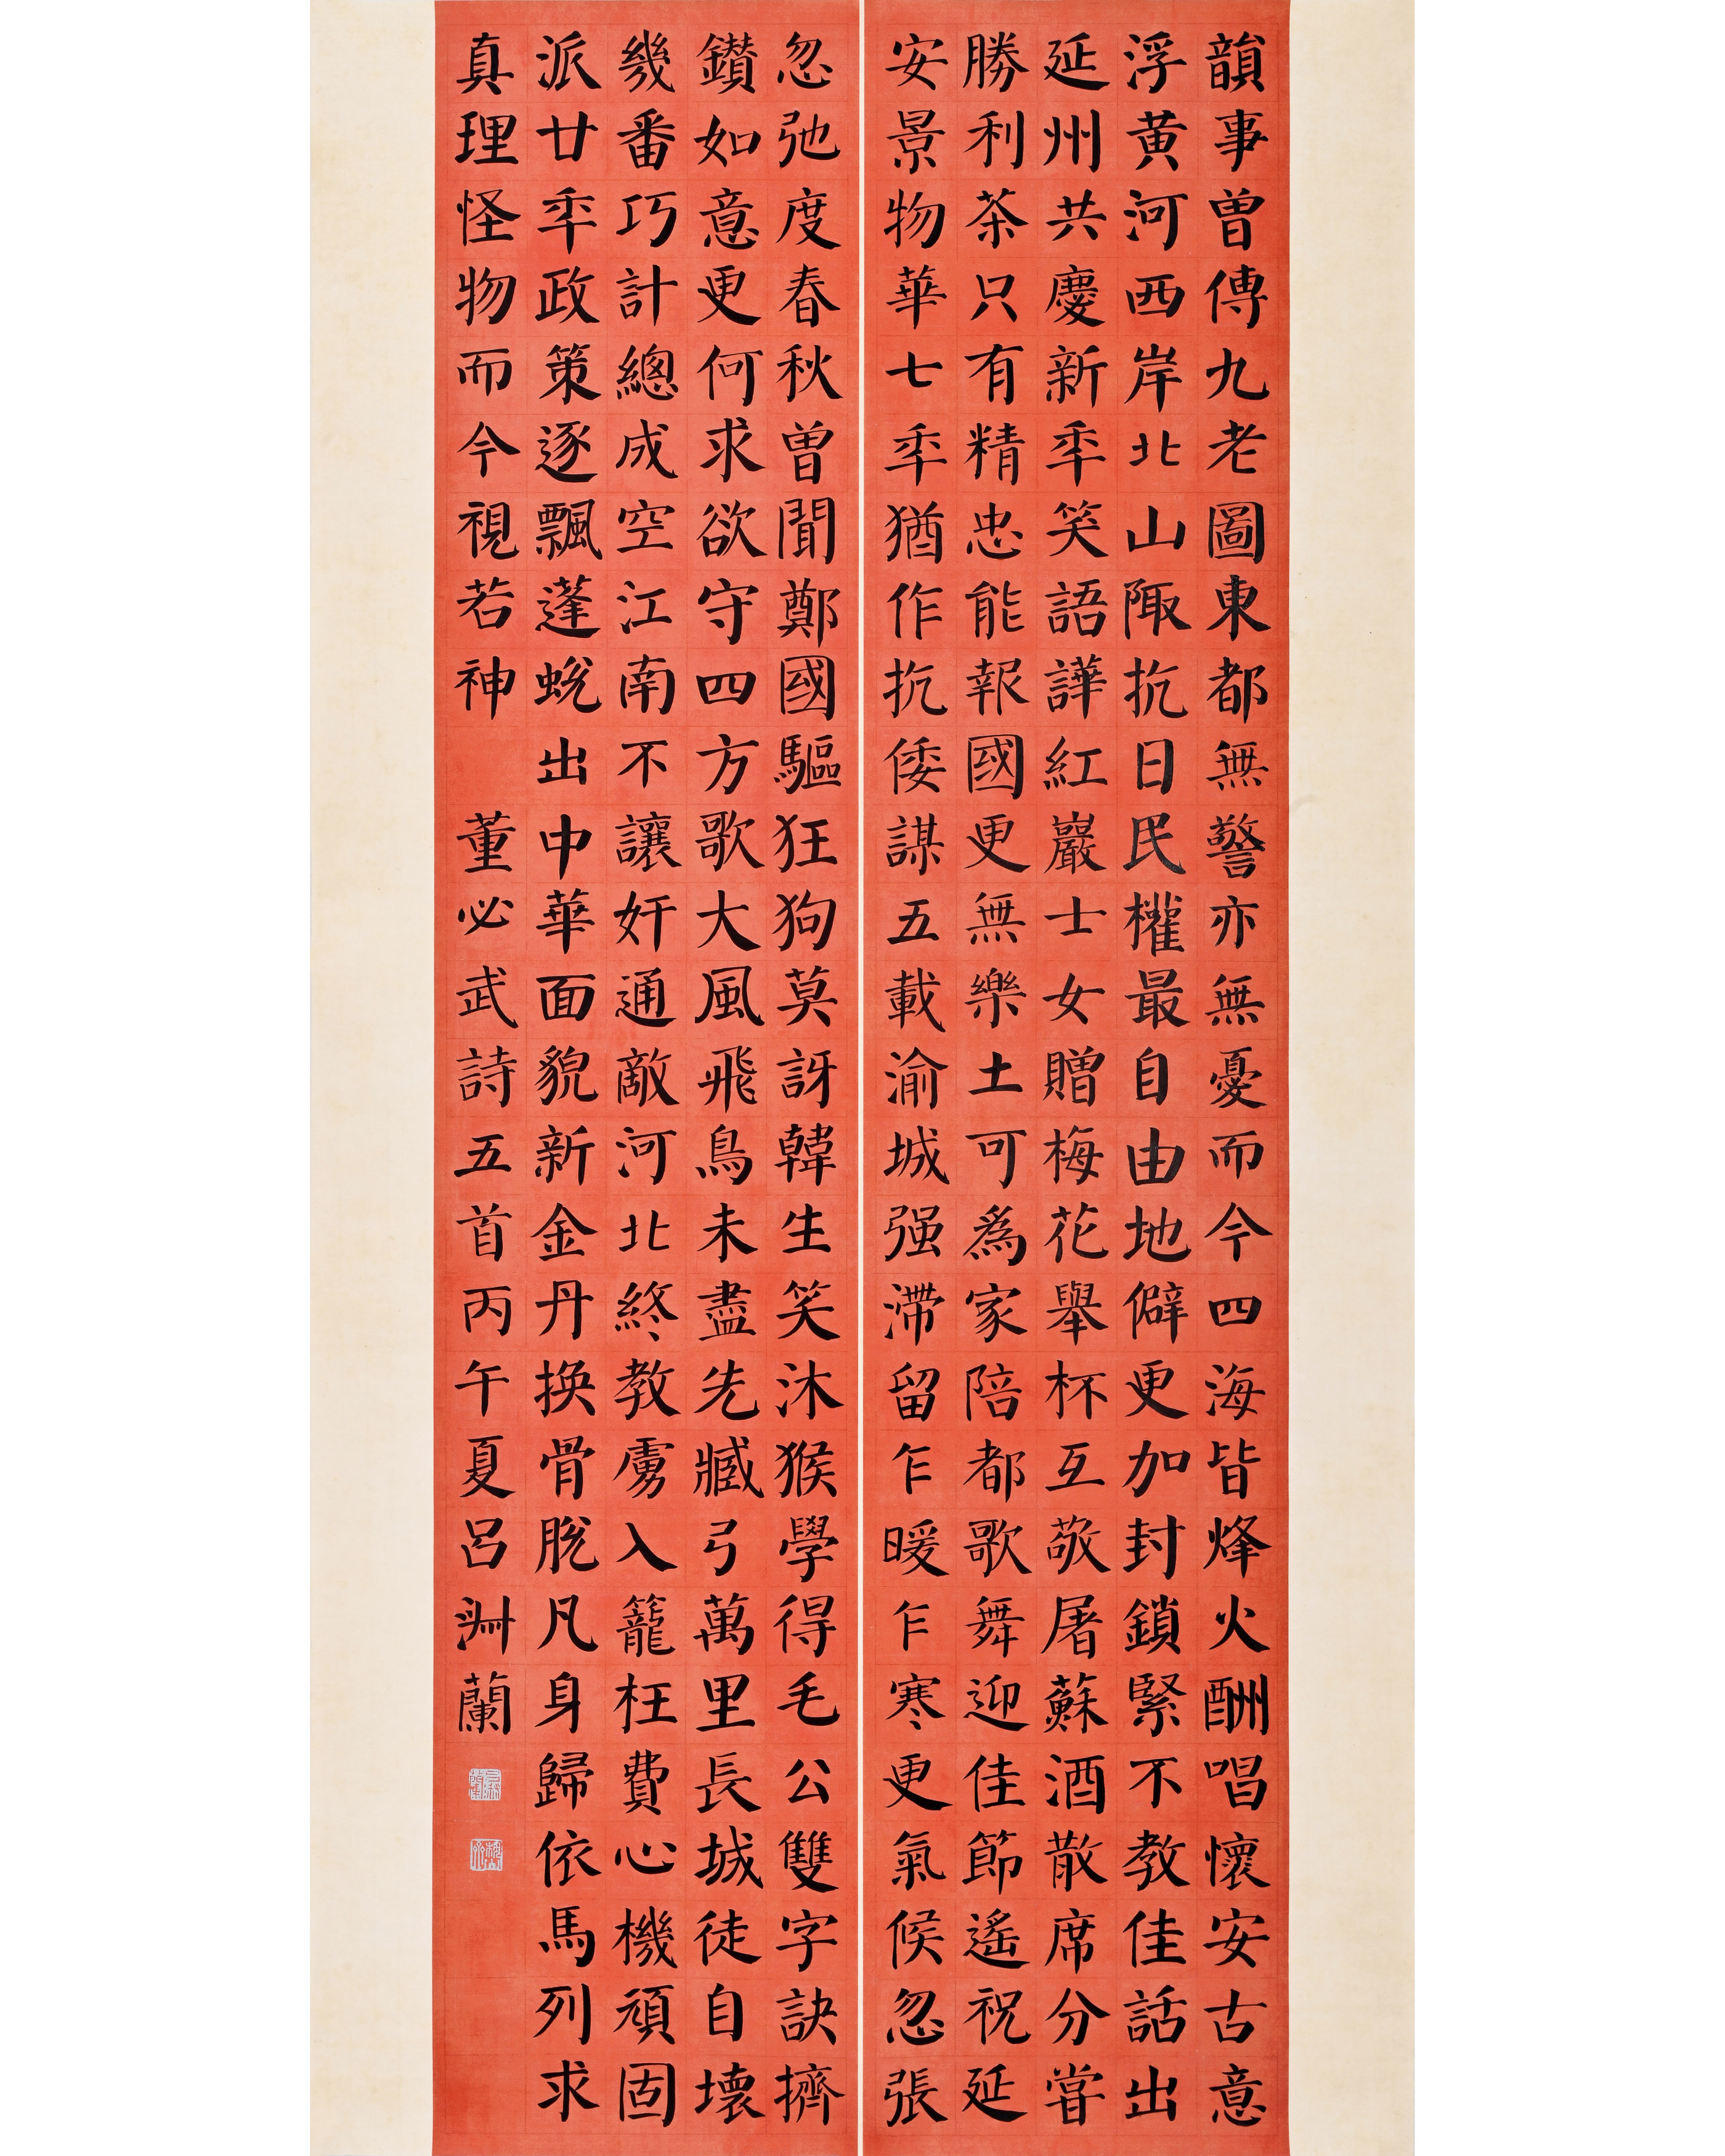 韻事曾傳九老圖東都無警亦無憂而今四海皆烽火酬唱懷安古意
浮黃河西岸北山陬抗日民權最自由地僻更加封鎖緊不教佳話出
延州共慶新秊笑語譁紅巖士女贈梅花舉杯互敬屠蘇酒散席分嘗
勝利茶只有精忠能報國更無樂土可為家陪都歌舞迎佳節遙祝延
安景物華七秊猶作抗倭謀五載渝城强滯留乍暖乍寒更氣候忽張
忽弛度春秋曾聞鄭國驅狂狗莫訝韓生笑沐猴學得毛公雙字訣擠
鑚如意更何求欲守四方歌大風飛鳥未盡先臧弓萬里長城徒自壞
幾番巧計總成空江南不讓奸通敵河北終教虜入籠枉費心機頑固
派廿秊政策逐飄蓬蛻出中華面貌新金丹換骨脫凡身歸依馬列求
真理怪物而今視若神 董必武詩五首丙午夏呂淵蘭